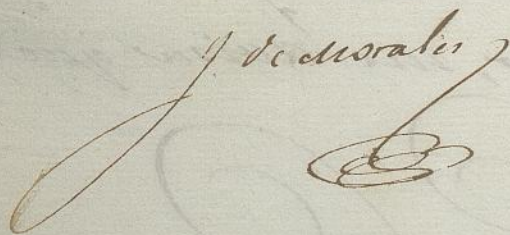 J de Morales